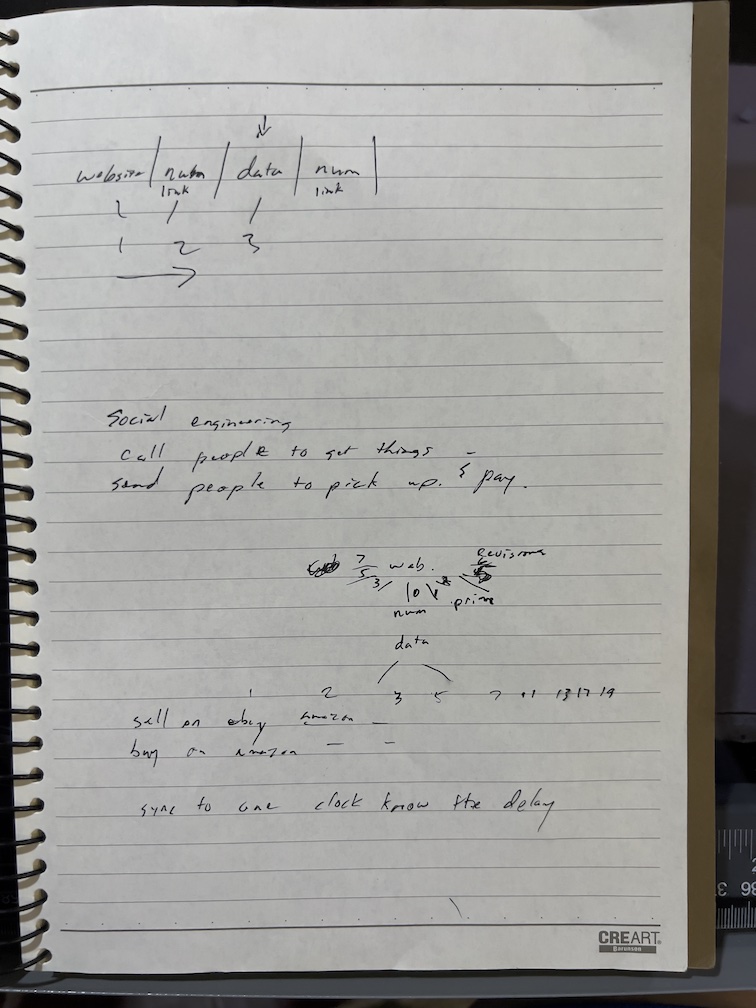 website | num | data | num |
link link
1 2 3
Social engineering
call people to get things -
send people to pick up. & pay.
7 web. Revisions
5
3 10
num prime
data
1 2 3 5 7 11 13 17 19
sell on ebay amazon —
buy on amazon — —
sync to one clock know the delay
CREART